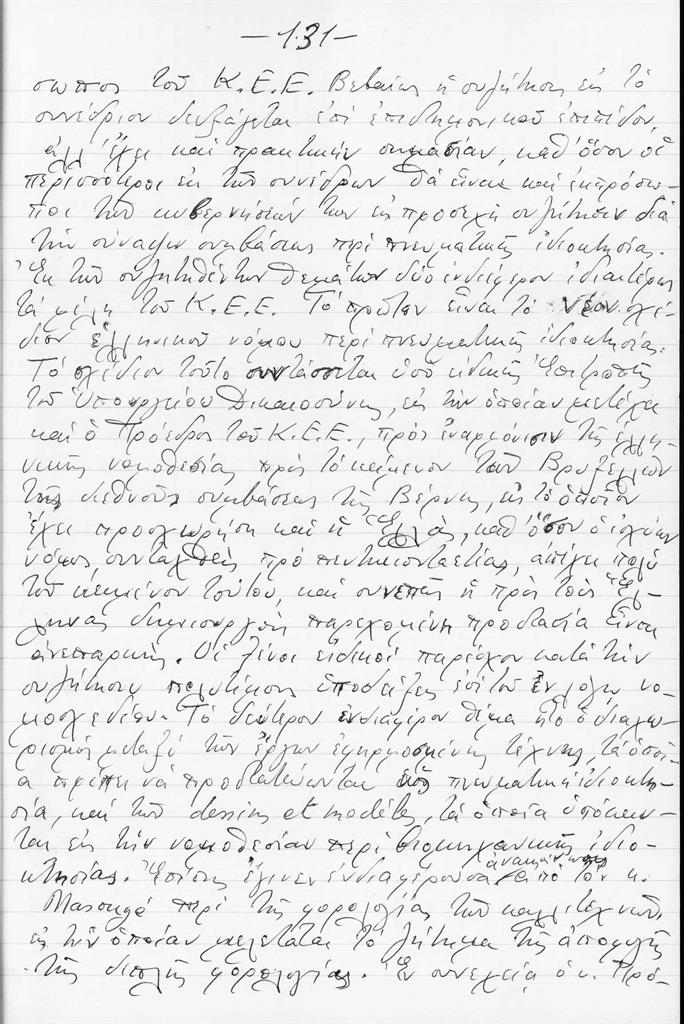 -131-
σωπος τοῦ Κ.Ε.Ε. Βεβαίως ἡ συζήτησις εἰς τὸ
συνέδριον διεξάγεται ἐπὶ ἐπιστημονικοῦ ἐπιπέδου,
ἀλλ' ἔχει καὶ πρακτικὴν σημασίαν, καθ' ὅσον οἱ
περισσότεροι ἐκ τῶν συνέδρων θὰ εἶναι καὶ ἐκπρόσω-
ποι τῶν κυβερνήσεών των εἰς προσεχῆ συζήτησιν διὰ
τὴν σύναψιν συμβάσεως περὶ πνευματικῆς ἰδιοκτησίας.
Ἐκ τῶν συζητηθέντων θεμάτων δύο ἐνδιέφερον ἰδιαιτέρως
τὰ μέλη τοῦ Κ.Ε.Ε. Τὸ πρῶτον εἶναι τὸ νέον σχέ-
διον ἑλληνικοῦ νόμου περὶ πνευματικῆς ἰδιοκτησίας.
Τὸ σχέδιον τοῦτο συντάσσεται ὑπὸ εἰδικῆς Ἐπιτροπῆς
τοῦ Ὑπουργείου Δικαιοσύνης, εἰς τὴν ὁποίαν μετέχει
καὶ ὁ Πρόεδρος τοῦ Κ.Ε.Ε., πρὸς ἐναρμόνισιν τῆς ἑλλη-
νικῆς νομοθεσίας πρὸς τὸ κείμενον τῶν Βρυξελλῶν
τῆς διεθνοῦς συμβάσεως τῆς Βέρνης, εἰς τὸ ὁποῖον
ἔχει προσχωρήση καὶ ἡ Ἑλλάς, καθ' ὅσον ὁ ἰσχύων
νόμος, συνταχθεὶς πρὸ πεντηκονταετίας, ἀπέχει πολὺ
τοῦ κειμένου τούτου, καὶ συνεπῶς ἡ πρὸς τοὺς Ἕλ-
ληνας δημιουργοὺς παρεχομένη προστασία εἶναι
ἀνεπαρκής. Οἱ ξένοι εἰδικοὶ παρέσχον κατὰ τὴν
συζήτησιν πολυτίμους ὑποδείξεις ἐπὶ τοῦ ἐν λόγῳ νο-
μοσχεδίου. Τὸ δεύτερον ἐνδιαφέρον θέμα ἦτο ὁ διαχω-
ρισμὸς μεταξὺ τῶν ἔργων ἐφηρμοσμένης τέχνης, τὰ ὁποῖ-
α πρέπει νὰ προστατεύωνται ὡς πνευματικὴ ἰδιοκτη-
σία, καὶ τῶν dessins et modèles, τὰ ὁποῖα ὑπόκειν-
ται εἰς τὴν νομοθεσίαν περὶ βιομηχανικῆς ἰδιο-
κτησίας. Ἐπίσης ἔγινεν ἐνδιαφέρουσα ἀνακοίνωσις ἀπὸ τὸν κ.
περὶ τῆς φορολογίας τῶν καλλιτεχνῶν,
εἰς τὴν ὁποίαν μελετᾶται τὸ ζήτημα τῆς ἀποφυγῆς
τῆς διπλῆς φορολογίας. Ἐν συνεχείᾳ ὁ κ. Πρό-